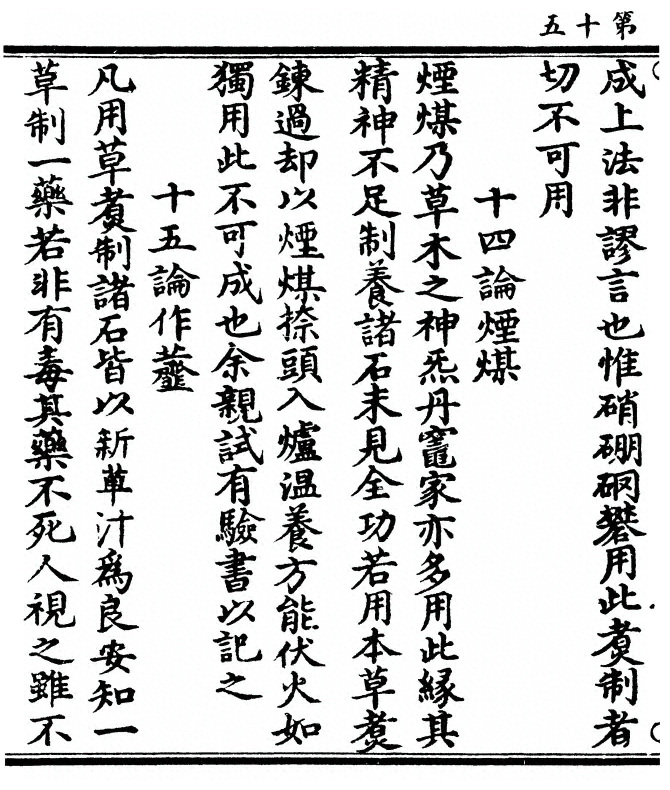 第十五
成上法非謬言也惟硝硼硇礬用此煑制者
切不可用
十四論煙煤
煙煤乃草木之神炁丹竈家亦多用此緣其
精神不足制養諸石未見全功若用本草煑
鍊過却以煙煤捺頭入爐温養方能伏火如
獨用此不可成也余親試有驗書以記之
十五論作虀
凡用草煑制諸石皆以新草汁爲良安知一
草制一藥若非有毒其藥不死人視之雖不